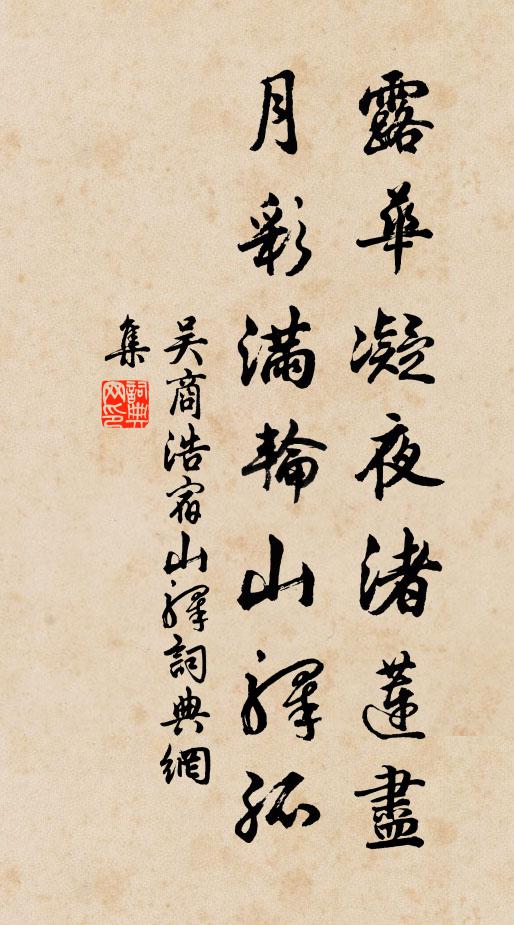 露華凝夜渚蓮盡
月彩滿輪山驛孤
吴商浩宿山驛詞典網
集
詞典
网印